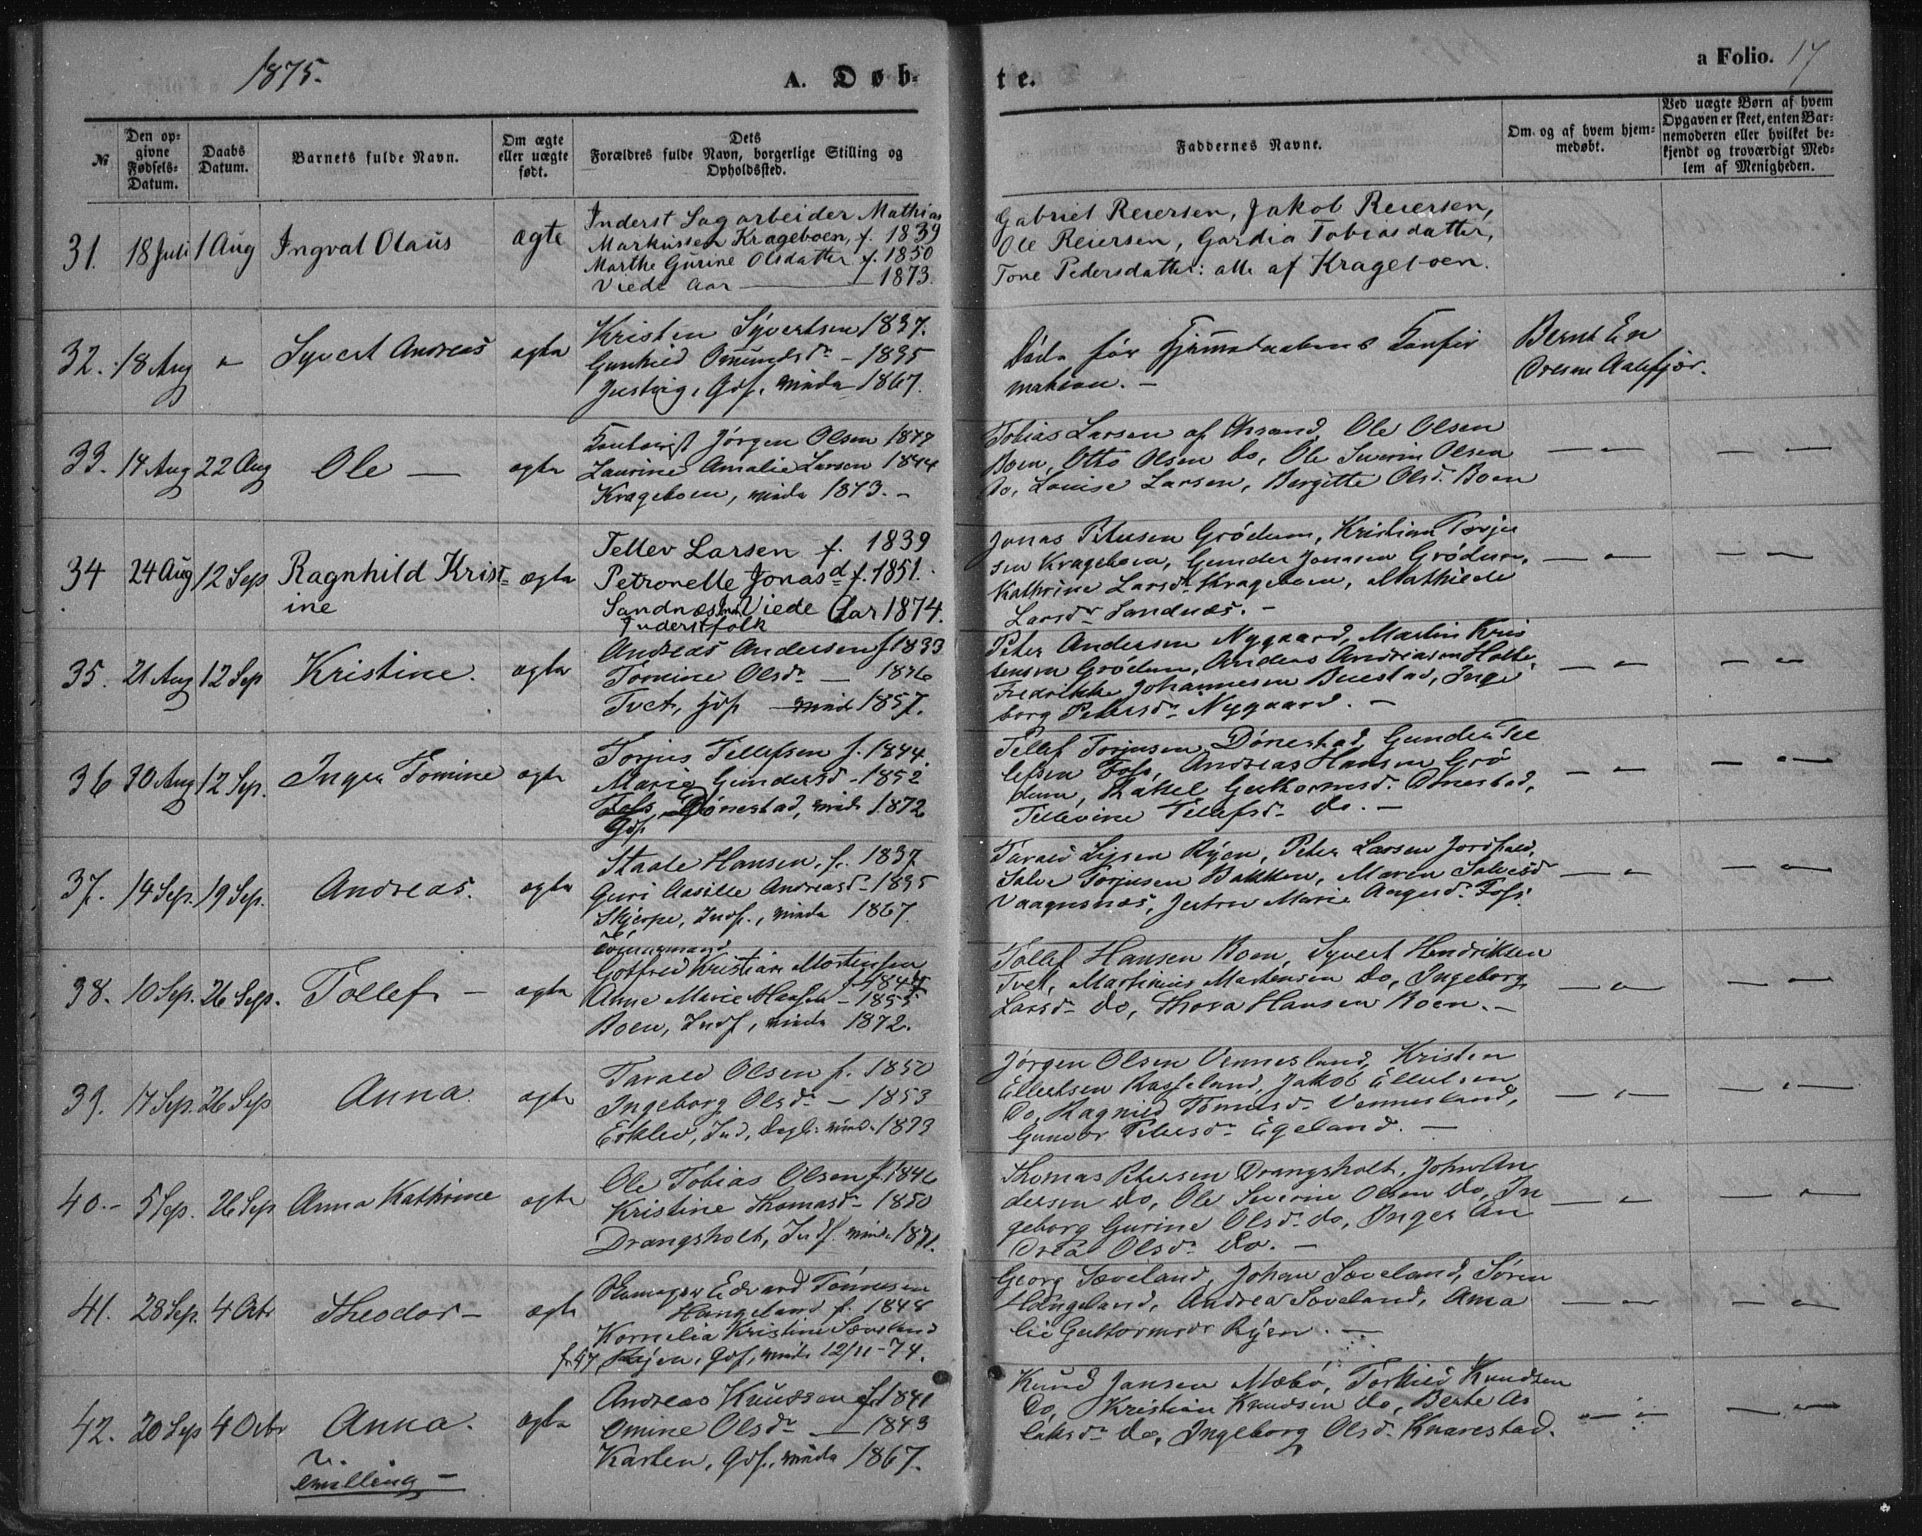 1875.
A. Døb-
te.
a Folio. 17
№
Den op-
givne
Fødsels-
Datum.
Daabs
Datum.
Barnets fulde Navn.
Om ægte
eller uægte
født.
Dets
Forældres fulde Navn, borgerlige Stilling og
Opholdssted.
Faddernes Navne.
Om og af hvem hjem-
medøbt.
Ved uægte Børn af hvem
Opgaven er skeet, enten Bar-
nemoderen eller hvilket be-
kjendt og troværdigt Med-
lem af Menigheden.
31. 18 Juli 1 Aug Ingval Olaus ægte
Inderst Sagarbeider Mathias
Markussen Krageboen, f. 1839
Marthe Gurine Olsdatter f. 1850
Viede Aar — 1873.
Gabriel Reiersen, Jakob Reiersen,
Ole Reiersen, Gardia Tobiasdatter,
Tone Pedersdatter: alle af Krageboen.
32. 18 Aug Syvert Andreas ægte
Kristen Syvertsen 1837.
Gunhild Omundsdr — 1835
Justvig, Gdf. 1867.
Døde før Hjemmedaabens Konfir
mation. —
Bernt En
dresen Aalefjær.
33. 14 Aug 22 Aug Ole — ægte
Jørgen Olsen 1847
Laurine Amalie Larsen 1844
Krageboen, 1873. —
Tobias Larsen af Ole Olsen
Boen, Otto Olsen do, Ole Severin Olsen
do, Louise Larsen, Birgitte Olsdr Boen
34 24 Aug 12 Sep Ragnhild Krist-
ine ægte
Tellev Larsen f. 1839
Petronelle Jonasd f. 1851.
Sandnæs Viede Aar 1874.
Inderstfolk
Jonas Petersen Grødum, Kristian Torju
sen Krageboen, Gunder Jonasen Grødum,
Kathrine Larsdr Krageboen, Mathilde
Larsdr Sandnæs. —
35. 21 Aug 12 Sep Kristine. ægte
Andreas Andersen f 1833
Tomine Olsdr — 1836
Tvet, Gdf 1857.
Peter Andersen Nygaard, Martin Kris
tensen Grødum, Anders Andreasen
Fredrikke Johannesen Inge
borg Petersdr Nygaard. —
36 30 Aug 12 Sep. Inga Tomine ægte
Torjus Tellefsen f. 1844.
Marie Gundersd — 1852
Dønestad, 1872
Gdf
Tellef Torjusen Dønestad, Gunder Tel
lefsen Foss, Andreas Hansen Grø
dum, Rakel Guttormsd. Dønestad,
Tellevine Tellefsd — do. —
37. 14 Sep. 19 Sep. Andreas. ægte
Staale Hansen, f. 1837
Guri Aasille Andreasd — 1835
Skjerpe, Indf., 1867.
Tarald Ryen, Peter Larsen
Salve Torjusen Bakken, Maren Salvesd
Vaagsnæs, Marie Aagesd. Foss.
38. 10 Sep. 26 Sep. Tollef — ægte
Tømmermand
Gotfred Kristian Mortensen
Anne Marie Hansen
Boen, Indf, 1872.
Tollef Hansen Boen, Syvert Hendriksen
Tvet, Martinius Mortensen do, Ingeborg
Larsd — do, Thora Hansen Boen. —
39. 17 Sep. 26 Sep Anna. ægte
Tarald Olsen f. 1850
Ingeborg Olsdr — 1853
Erklev, Ind, Dagl. 1873
Jørgen Olsen Vennesland, Kristen
Ellertsen Kasseland, Jakob Ellertsen
do, Ragnild Tomasdr Vennesland,
Gunvor Petersdr Egeland. —
40. — 5 Sep. 26 Sep Anna Kathrine ægte
Ole Tobias Olsen f. 1846
Kristine Thomasdr — 1850
Drangsholt, Indf. 1871.
Thomas Petersen Drangsholt, John An
dersen do, Ole Severin Olsen do, In
geborg Gurine Olsd — do, Inger An
drea Olsdr do. —
41. 28 Sep. 4 Octr Theodor — ægte
Edvard Tønnesen
Haugeland f. 1848
Kornelia Kristine Søveland
f. 47, Ryen, Gdf, 12/11 — 74.
Georg Søveland, Johan Søveland, Søren
Haugeland, Andrea Søveland, Ama
lie Guttormsdr Ryen. —
42. 20 Sep 4 Octr Anna. ægte
Tvilling —
Andreas Knudsen f. 1841
Omine Olsdr — 1843
Karten, Gdf., 1867.
Knud Jansen Mæbø, Torkild Knudsen
do, Kristian Knudsen do, Berte As
laksdr do, Ingeborg Olsdr Knarestad.